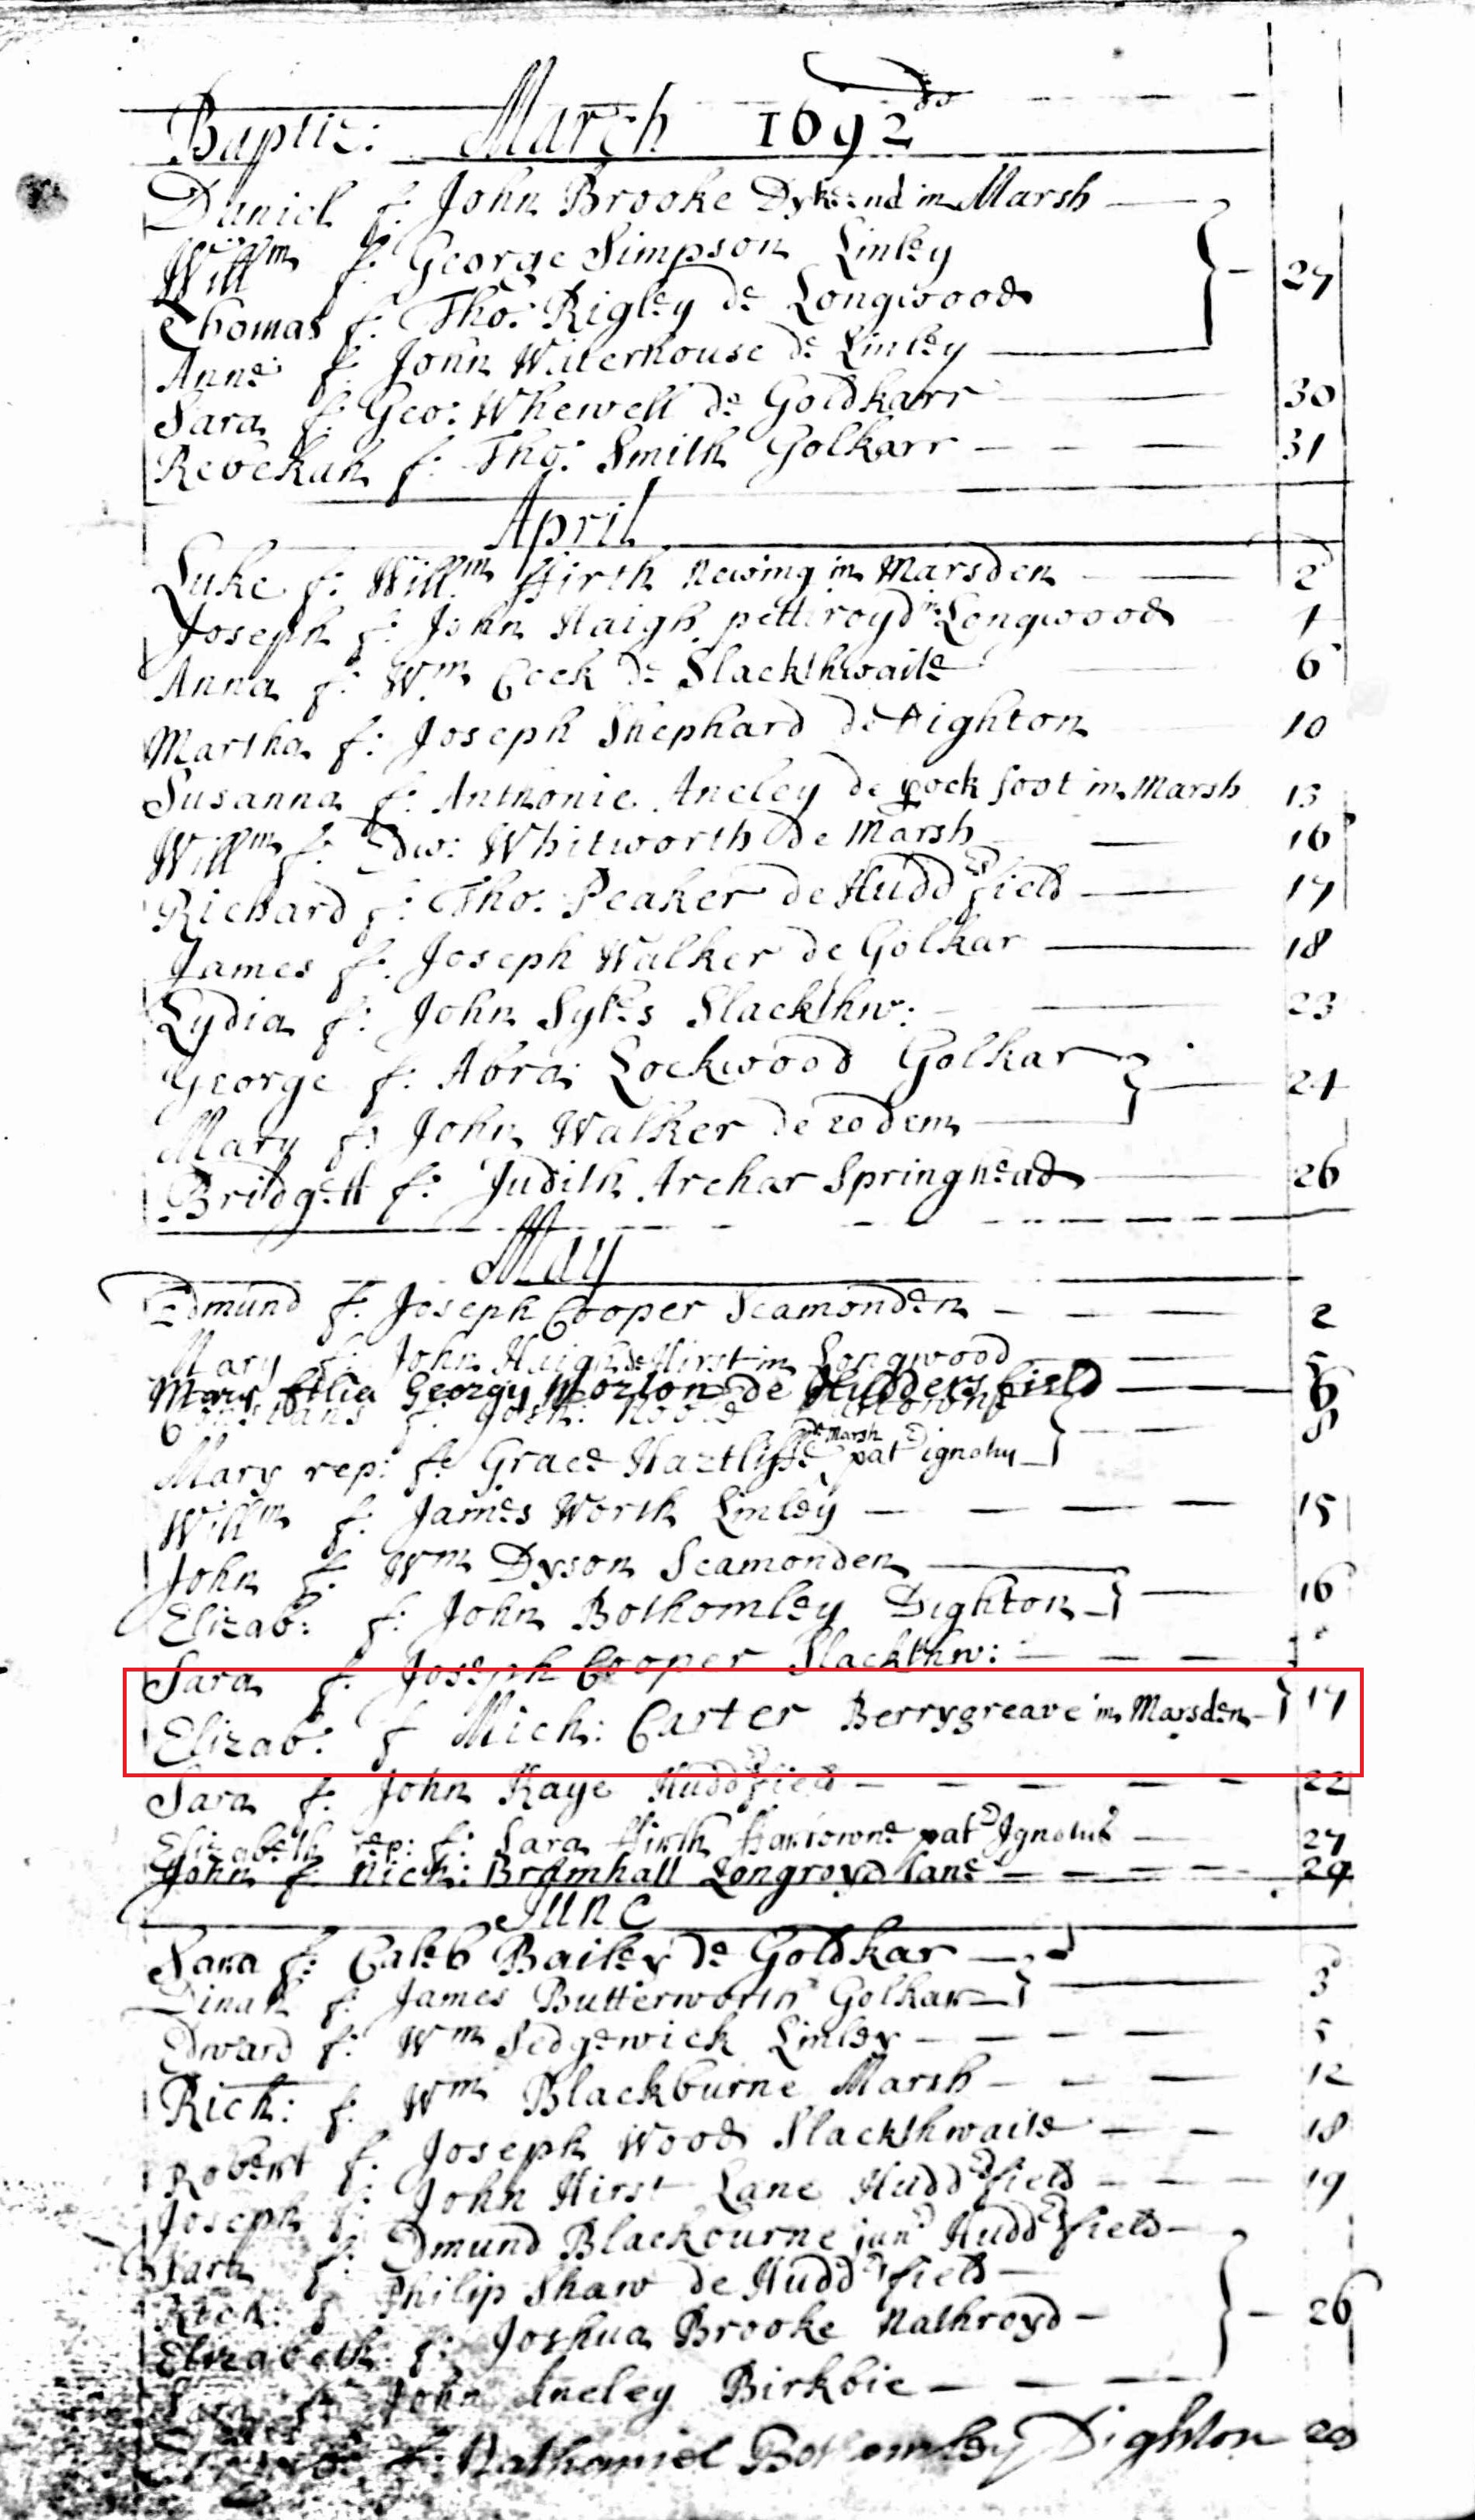 Baptiz: March 1692
Daniel f: John Brooke Dykeend in Marsh
Willm f: George Simpson Linley 27
Thomas f: Tho: Rigley de Longwood
Anne f: John Waterhouse de Linley
Sara f: Geo: Whewell de Goldkarr 30
Rebekah f: Tho: Smith Golkarr 31
April
Luke f: Willm Hirth Newing in Marsden 2
Joseph f: John Haigh pettiroyd in Longwood 4
Anna f: Wm Cock de Slackthwaite 6
Martha f: Joseph Shephard de Dighton 10
Susanna f: Anthonie Aneley de foot in Marsh 13
Willm f: Edw: Whitworth de Marsh 16
Richard f: Tho: Peaker de Huddfield 17
James f: Joseph Walker de Golkar 18
Lydia f: John Sykes Slackthw: 23
George f: Abra: Lockwood Golkar 24
Mary f: John Walker de
Bridgett f: Judith Archar Springhead 26
May
Edmund f: Joseph Cooper Scamonden 2
Mary f: John Haigh de Hirst in Longwood 5
Mary filia Georgy Morton de Huddersfield 6
f: 8
Mary rep: f: Grace de Marsh pat ignotus
Willm f: James Worth Linley 15
John f: Wm Dyson Scamonden
Elizab: f: John Bothomley Dighton 16
Sara f: Joseph Cooper Slackthw:
Elizab: f Mich: Carter Berrygreave in Marsden 17
Sara f: John Kaye Huddfield 22
Elizabeth rep: f: Sara Hirth pat Ignotus 27
John f: Nich: Bramhall Longroyd lane 29
June
Sara f: Caleb Bailey de Goldkar
Dinah f: James Butterworth Golkar 3
Edward f: Wm Sedgewick Linley 5
Rich: f: Wm Blackburne Marsh 12
Robert f: Joseph Wood Slackthwaite 18
Joseph f: John Hirst Lane Huddfield 19
Sara f: Edmund Blackburne jun Huddfield
Rich: f: Philip Shaw de Huddfield
Elizabeth f: Joshua Brooke Nathroyd 26
Sara f: John Aneley Birkbie
f: Nathaniel Bothomley Dighton